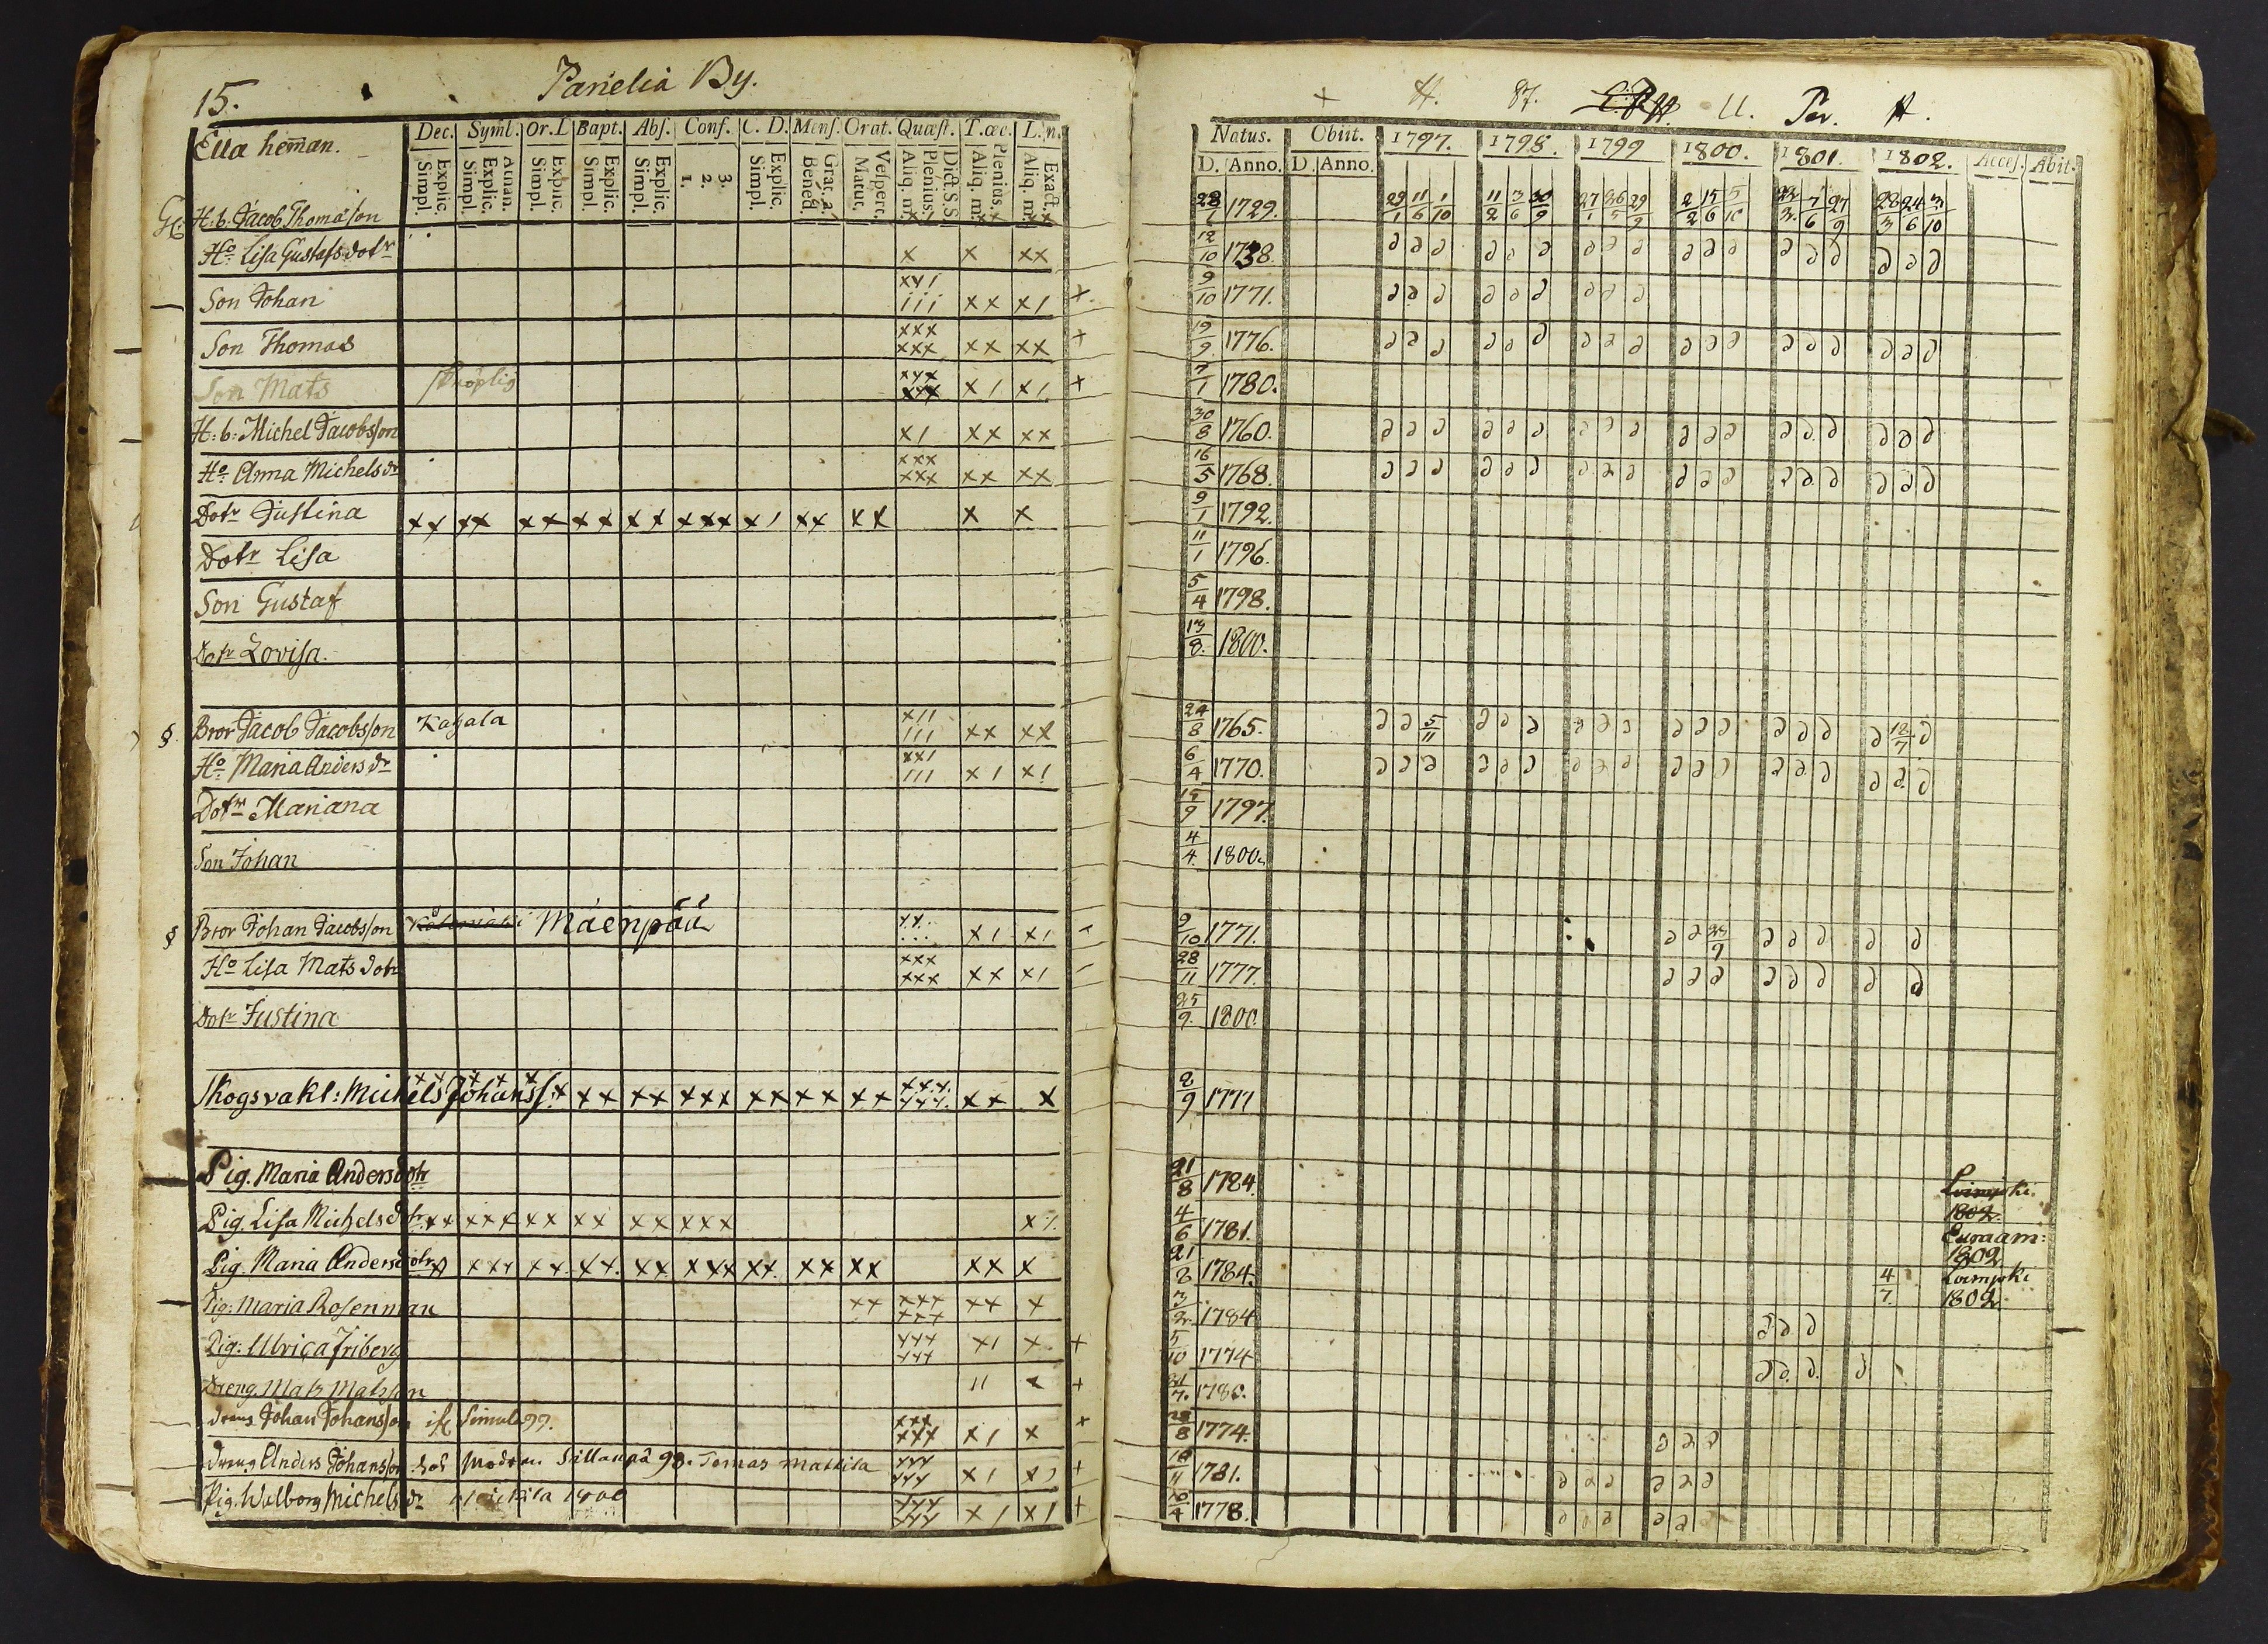 15. Panelia By.
Ella hem̄an.
Dec. Symb. Or. D. Bapt. Abs. Conf. C. D. Mens. Orat. Quæst. T. œc. L. n.
Explic. Simpl. Athan. Explic. Simpl. Explic. Simpl. Explic. Simpl. Explic. Simpl. 3. 2. 1. Explic. Simpl. Grat. a. Bened. Vesperc. Matut. Dict. S. S. Plenius. Aliq. m. Plenius. Aliq. m. Exact. Aliq. m.
H: b. Jacob Thomasson
Ho: Lisa Gustafs dotr x x xx
Son Johan xx1 111 xx x1 +
Son Thomas xxx xxx xx xx +
Son Mats xxx xxx x1 x1 +
H: b: Michel Jacobsson x1 xx xx
Ho: Anna Michels dr xxx xxx xx xx
Dotr Justina xx xx xx xx xx xxx x1 xx xx x x
Dotr Lisa
Son Gustaf
Dotr Lovisa.
§. Bror Jacob Jacobsson Kahala x11 111 xx xx
Ho: Maria Anders dr xx1 111 x1 x1
Dotr Mariana
Son Johan
§ Bror Johan Jacobsson Mäenpää xx x1 x1
Ho Lisa Mats dotr xxx xxx xx x1
Dotr Justina
Skogsvakt: Michels Johanss: xx xx xxx xx xx xx xxx xxx xx x
Pig. Maria Andersdotr
Pig. Lisa Michelsdotr xx xxx xx xx xx xxx x
Pig. Maria Andersdotr x xxx xx xx xx xxx xx xx xx xx x
Pig: Maria Rosenman xx xxx xxx xx x
Pig: Ulrica Friberg xxx xxx x1 x +
Dreng. Mats Matsson 11 x +
dreng Johan Johansson xxx xxx x1 x x
dreng Anders Johansson Sillanpä 98. Tomas Mattila xxx xxx x1 x1 +
Pig. Walborg Michels dr 1800 xxx xxx x1 x1 +
+ H. 87. U. Par. H.
Natus. Obiit. 1797. 1798. 1799 1800. 1801. 1802. Acces. Abit.
D. Anno. D. Anno.
28/1 1729. 29/1 11/6 1/10 11/2 3/6 30/9 27/1 26/5 29/9 2/2 15/6 5/10 22/3 7/6 27/9 28/3 24/6 3/10
12/10 1738.
9/10 1771.
19/9 1776.
7/1 1780.
30/8 1760.
16/5 1768.
9/1 1792.
11/1 1796.
5/4 1798.
13/8. 1800.
24/8 1765. 5/11 18/7
6/4 1770.
15/9 1797.
4/4. 1800.
9/10 1771.
28/11 1777.
25/9. 1800
2/9 1771
21/8 1784. Loimjoki. 1802.
4/6 1781. Euraam: 1802
21/8 1784. 4/7. Loimjoki 1802.
3/2. 1784
5/10 1774
1780.
28/8 1774.
18/11 1781.
20/4 1778.